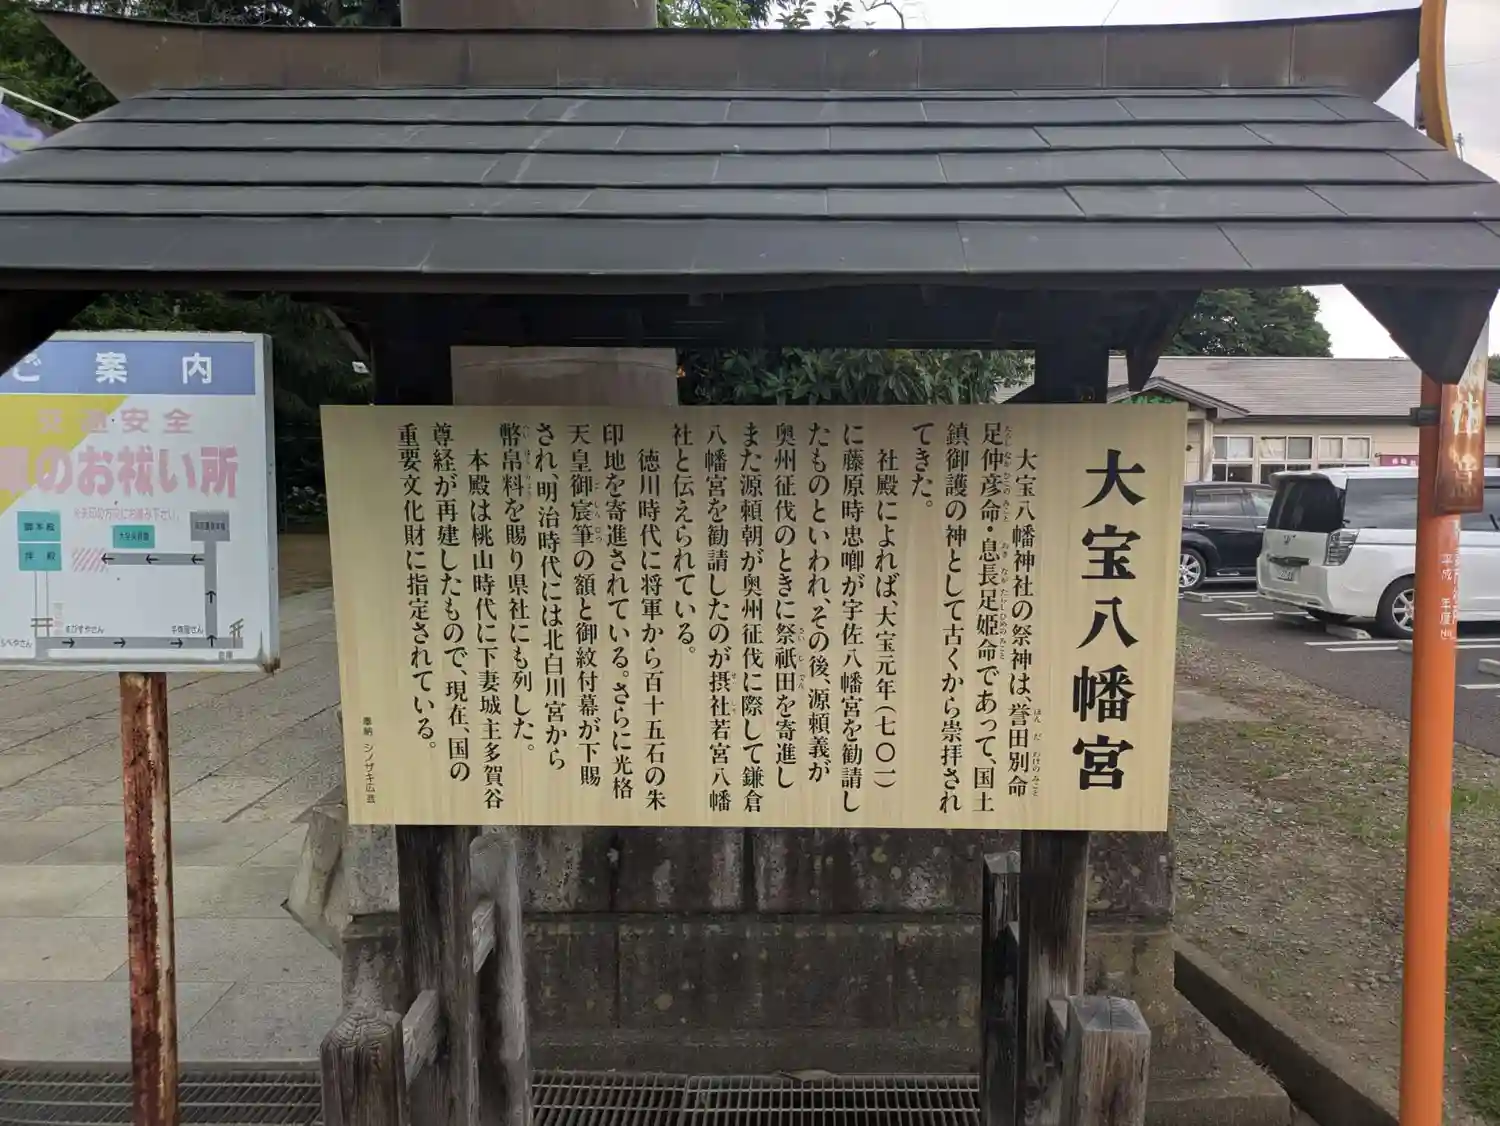 大宝八幡宮
大宝八幡神社の祭神は、誉田別命
足仲彦命・息長足姫命であって、国土
鎮御護の神として古くから崇拝され
てきた。
社殿によれば、大宝元年(七〇一)
に藤原時忠啣が宇佐八幡宮を勧請し
たものといわれ、その後、源頼義が
奥州征伐のときに祭祇田を寄進し
また源頼朝が奥州征伐に際して鎌倉
八幡宮を勧請したのが摂社若宮八幡
社と伝えられている。
徳川時代に将軍から百十五石の朱
印地を寄進されている。さらに光格
天皇御宸筆の額と御紋付幕が下賜
され、明治時代には北白川宮から
幣帛料を賜り県社にも列した。
本殿は桃山時代に下妻城主多賀谷
尊経が再建したもので、現在、国の
重要文化財に指定されている。
奉納 シノザキ広芸
ご案内
交通安全
車のお祓い所
御本殿
拝殿